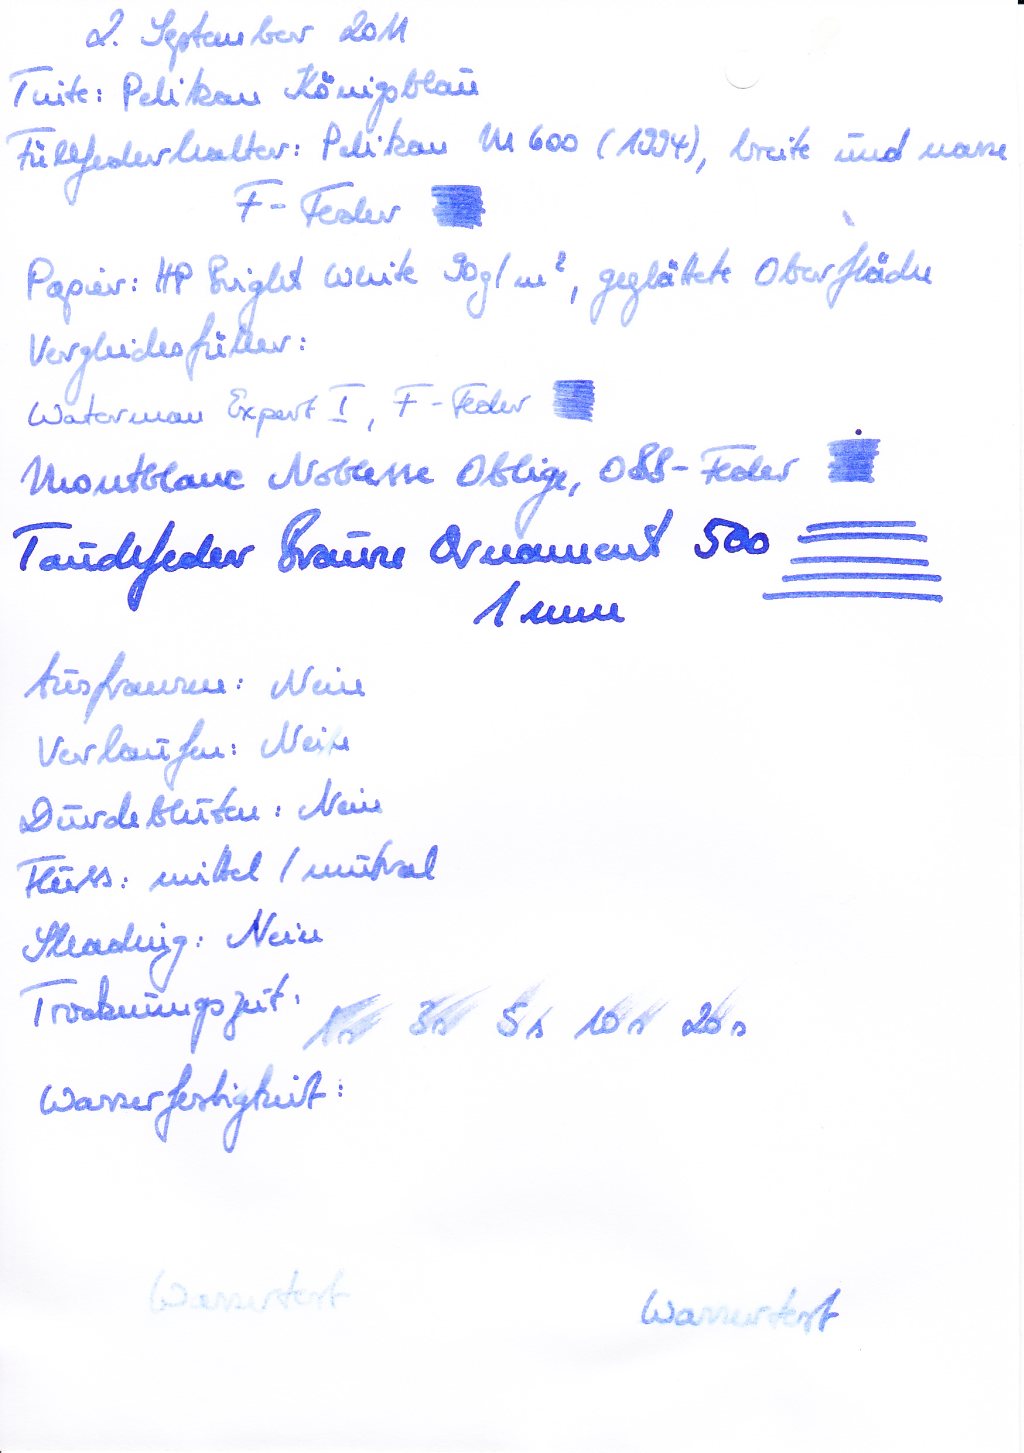 2. September 2011
Tinte: Pelikan Königsblau
Füllfederhalter: Pelikan M 600 (1994), breite und nasse
F-Feder
Papier: HP Bright White 90g/m², geglättete Oberfläche
Vergleichsfüller:
Waterman Expert I, F-Feder
Montblanc Noblesse Oblige, OBB-Feder
Tauchfeder Brause Ornament 500
1 mm
Ausfransen: Nein
Verlaufen: Nein
Durchbluten: Nein
Fluss: mittel / neutral
Shading: Nein
Trocknungszeit: 1s 3s 5s 10s 20s
Wasserfestigkeit:
Wassertest Wassertest